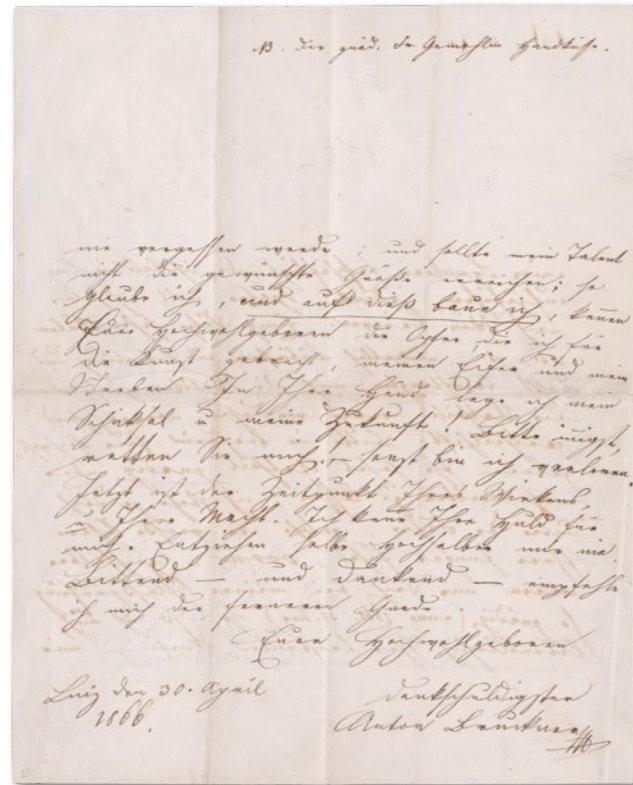 NB. Der gnäd. Fr. Gemahlin Handküsse.
nie vergessen werde; und sollte mein Talent
nicht die gewünschte Größe erreichen; so
glaube ich, und auf dieß baue ich, kennen
Euer Hochwohlgeboren die Opfer die ich für
die Kunst gebracht, meinen Eifer und mein
Streben. In Ihre Händ lege ich mein
Schicksal u meine Zukunft! Bitte innigst,
retten Sie mich! – sonst bin ich verloren.
Jetzt ist der Zeitpunkt Ihres Wirkens
u Ihrer Macht. Ich kenne Ihre Huld für
mich. Entziehen selbe Hochselber mir nie.
Bittend — und dankend — empfehle
ich mich der ferneren Gnade.
Euer Hochwohlgeboren
Linz den 30. April
1866.
dankschuldigster
Anton Bruckner